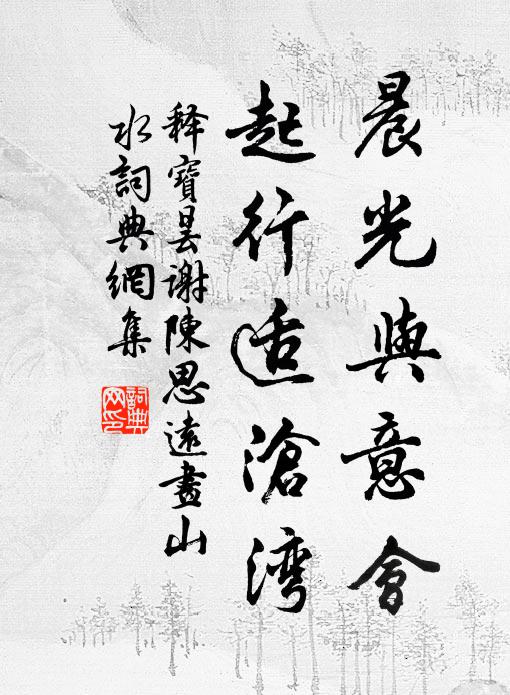 晨光與意會
起行适滄灣
释寶昙謝陳思遠畫山
水詞典網集
詞典
网印